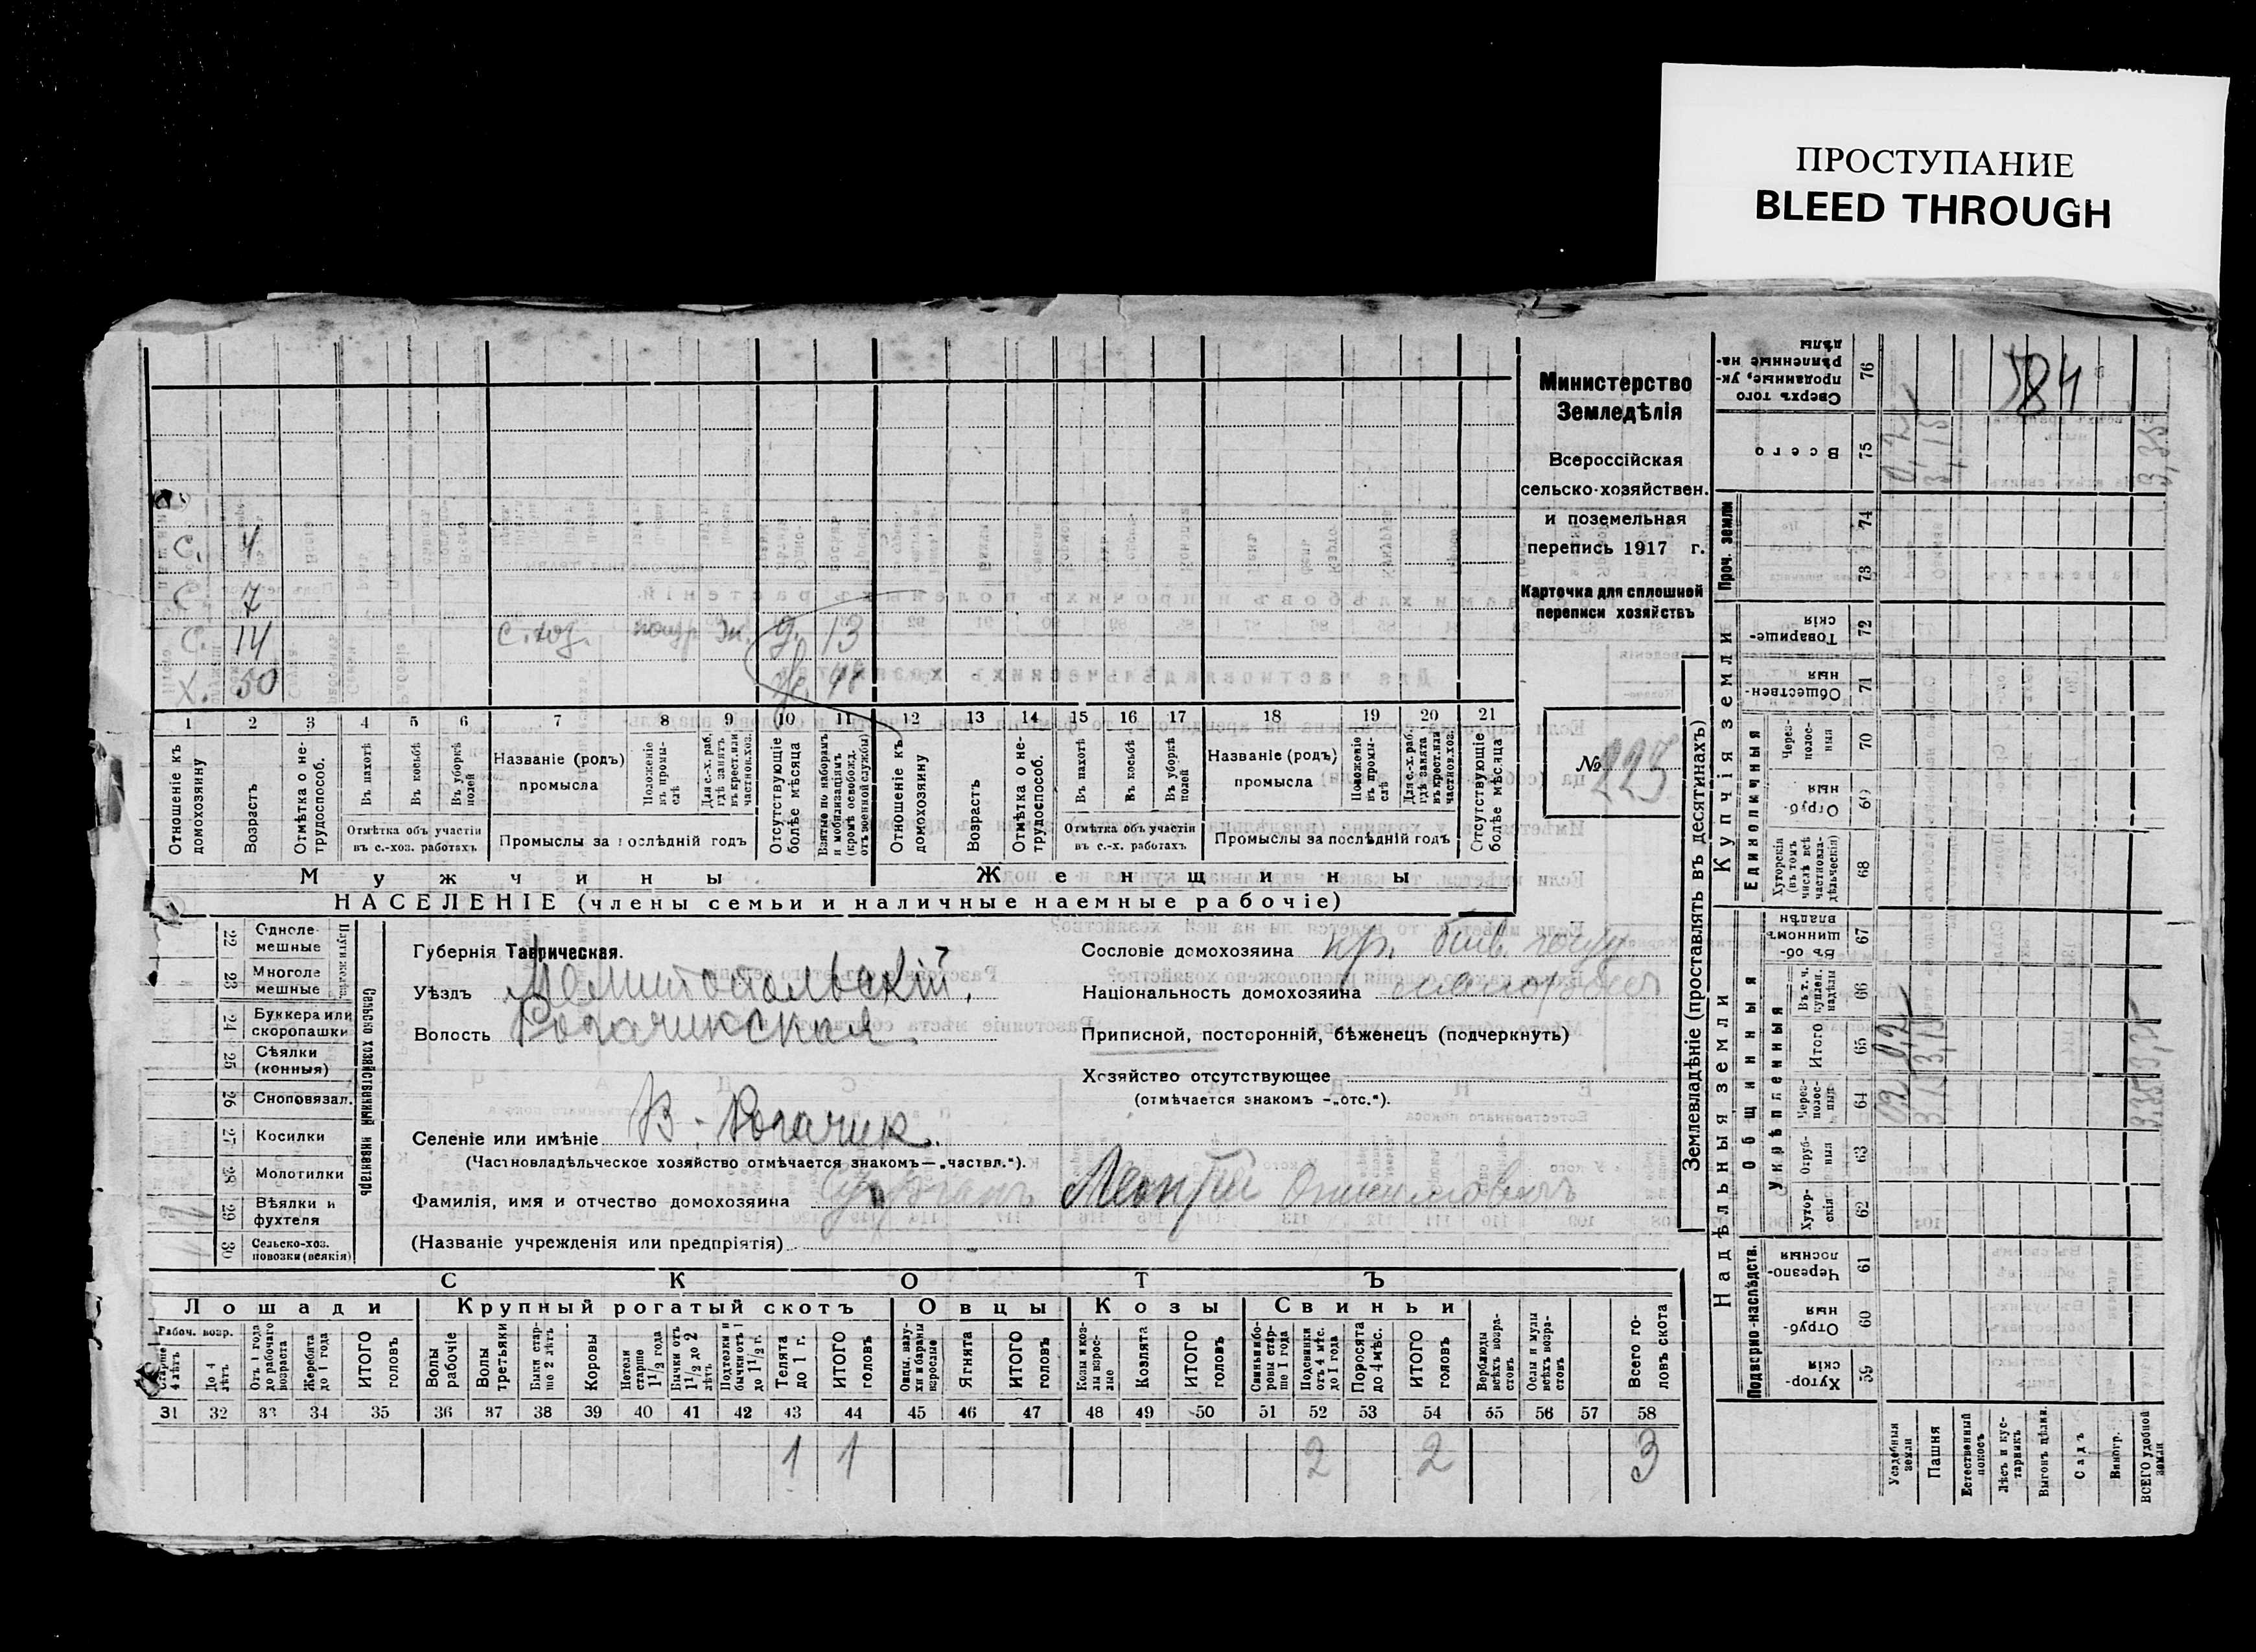 ПРОСТУПАНИЕ
BLEED THROUGH
584
Министерство
Земледѣлія
Всероссійская
сельско-хозяйствен.
и поземельная
перепись 1917 г.
Карточка для сплошной
переписи хозяйствъ
№ 225
С. 4
С. 7
С. 14 с. хоз. ж. д. 13
Х. 50 ж. 48
1 2 3 4 5 6 7 8 9 10 11 12 13 14 15 16 17 18 19 20 21
Отношеніе къ домохозяину
Возрастъ
Отмѣтка о не-трудоспособ.
Въ пахотѣ
Въ косьбѣ
Въ уборкѣ полей
Отмѣтка объ участіи въ с.-хоз. работахъ
Названіе (родъ) промысла
Положеніе въ промы-слѣ
Для с.-х. раб. гдѣ занятъ въ крест. или частнов. хоз.
Промыслы за послѣдній годъ
Отсутствующіе болѣе мѣсяца
Взятые по наборамъ и мобилизаціямъ (кромѣ освобожд. отъ военной службы)
Отношеніе къ домохозяину
Возрастъ
Отмѣтка о не-трудоспособ.
Въ пахотѣ
Въ косьбѣ
Въ уборкѣ полей
Отмѣтка объ участіи въ с.-х. работахъ
Названіе (родъ) промысла
Положеніе въ промы-слѣ
Для с.-х. раб. гдѣ занята въ крест. или частнов. хоз.
Промыслы за послѣдній годъ
Отсутствующіе болѣе мѣсяца
Мужчины Женщины
НАСЕЛЕНІЕ (члены семьи и наличные наемные рабочіе)
22 Одноле-мешные
23 Многоле-мешные
24 Буккера или скоропашки
25 Сѣялки (конныя)
26 Сноповязал.
27 Косилки
28 Молотилки
29 Вѣялки и фухтеля
30 Сельско-хоз. повозки (всякія)
Плуги желѣзн.
Сельско хозяйственный инвентарь
Губернія Таврическая.
Уѣздъ Мелитопольскій.
Волость Рогачикская.
Селеніе или имѣніе В-Рогачик.
(Частновладѣльческое хозяйство отмѣчается знакомъ—„частвл.“).
Фамилія, имя и отчество домохозяина Леонтій Онисимовичъ
(Названіе учрежденія или предпріятія)
Сословіе домохозяина кр.
Національность домохозяина
Приписной, посторонній, бѣженец (подчеркнуть)
Хозяйство отсутствующее
(отмѣчается знакомъ -„отс.“).
СКОТЪ
Лошади Крупный рогатый скотъ Овцы Козы Свиньи
Рабоч. возр.
Старше 4 лѣтъ
До 4 лѣтъ
Отъ 1 года до рабочаго возраста
Жеребята до 1 года
ИТОГО головъ
Волы рабочіе
Волы третьяки
Быки стар-ше 2 лѣтъ
Коровы
Нетели старше 1 1/2 года
Бычки отъ 1 1/2 до 2 лѣтъ
Подтелки и бычки отъ 1 до 1 1/2 г.
Телята до 1 г.
ИТОГО головъ
Овцы, валу-хи и бараны взрослые
Ягнята
ИТОГО головъ
Козы и коз-лы взрос-лые
Козлята
ИТОГО головъ
Свиньи и бо-ровы стар-ше 1 года
Подсвинки отъ 4 мѣс. до 1 года
Поросята до 4 мѣс.
ИТОГО головъ
Верблюды всѣхъ возра-стовъ
Ослы и мулы всѣхъ возра-стовъ
Всего го-ловъ скота
31 32 33 34 35 36 37 38 39 40 41 42 43 44 45 46 47 48 49 50 51 52 53 54 55 56 57 58
1 1 2 2 3
Землевладѣніе (проставлять въ десятинахъ)
Купчія земли
Надѣльныя земли
Сверхъ того проданные, ук-рѣпленные на-дѣлы 76
Всего 75
Проч. земли 74 73
Товарище-скія 72
Обществен-ныя 71
Единоличныя
Через-полос-ныя 70
Отруб-ныя 69
Хуторскія (въ томъ числѣ всѣ частновла-дѣльческія) 68
Общинныя
Въ об-щинномъ владѣн 67
Укрѣпленныя
Въ т. ч. куплен. надѣлы 66
Итого 65
Через-полос-ныя 64
Отруб-ныя 63
Хутор-скія 62
Подворно-наслѣдств.
Черезпо-лосныя 61
Отруб-ныя 60
Хутор-скія 59
Усадебныя земли
Пашня
Естественный покосъ
Лѣсъ и кус-тарникъ
Выгонъ цѣлин.
Садъ
Виногр.
ВСЕГО удобной земли